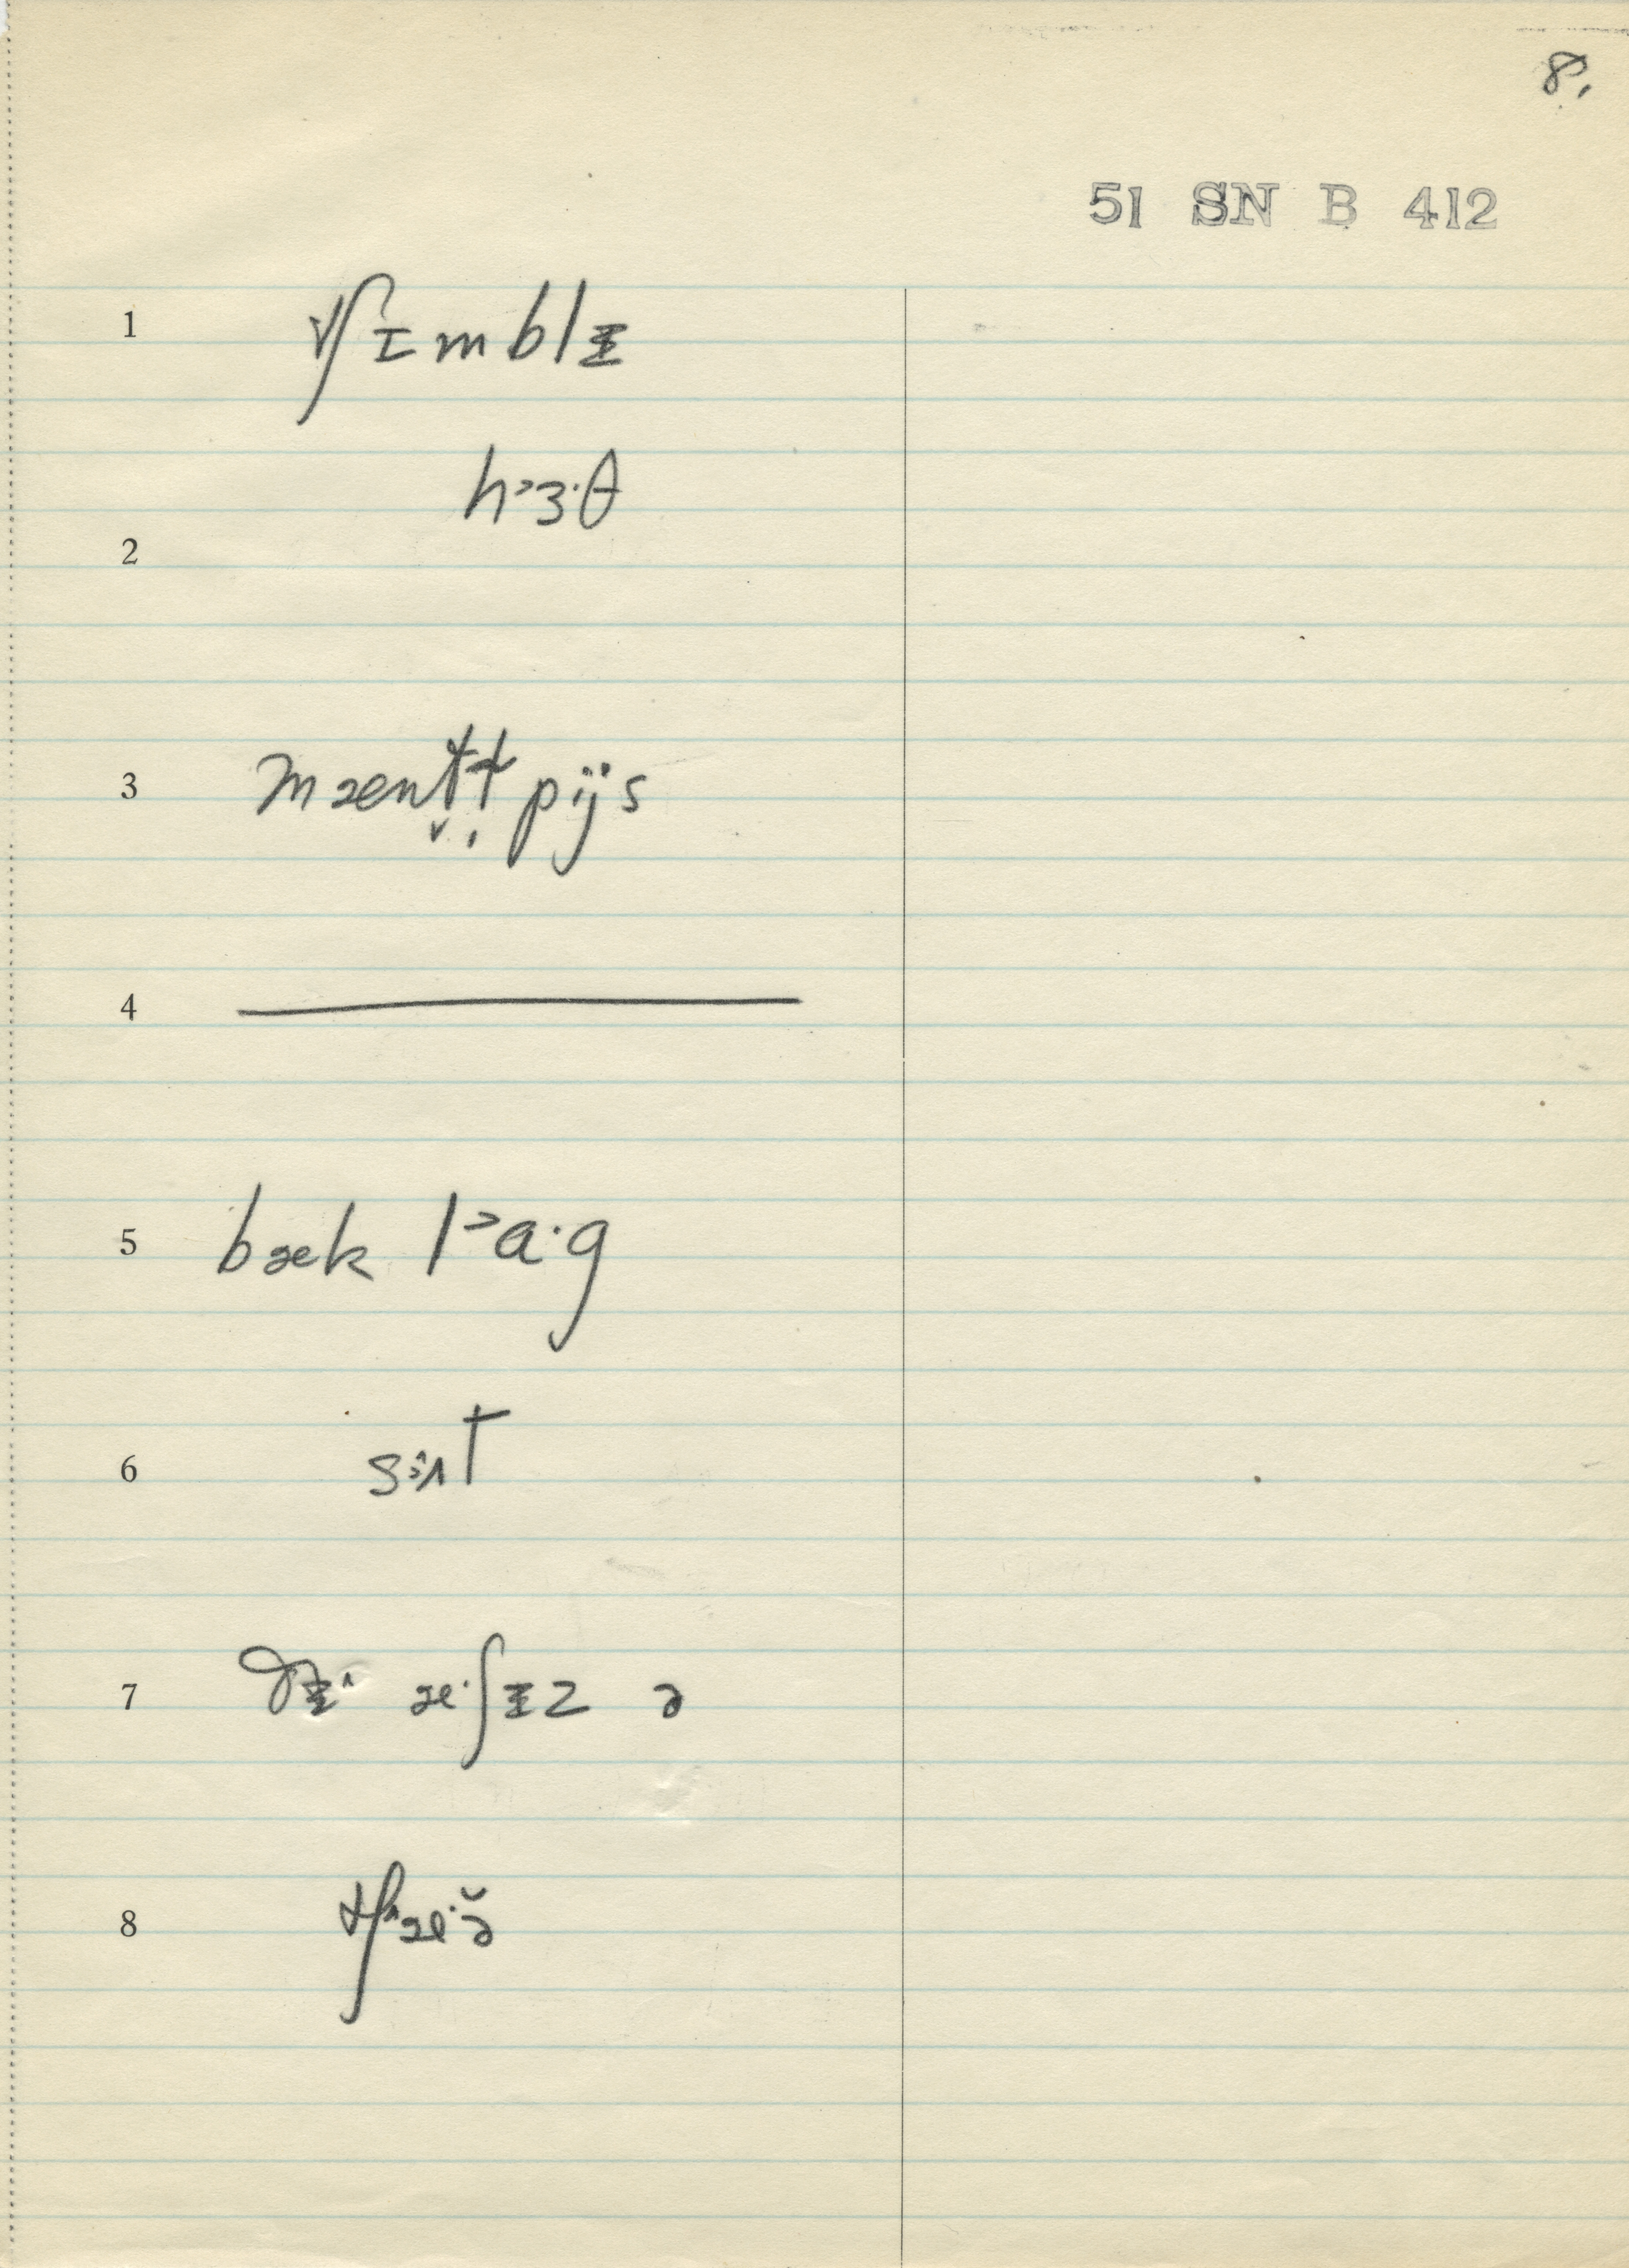 8.
51 SN B 412
1 tʃɪmblɪ̵
2 h˃ɜ·θ
3 mæntt̬̣ pijs
4
5 bæk l˃a·g
6 sʌt
7 ðɪ̵^ æ·ʃɪ̵z ə
8 tʃæ·ə̆